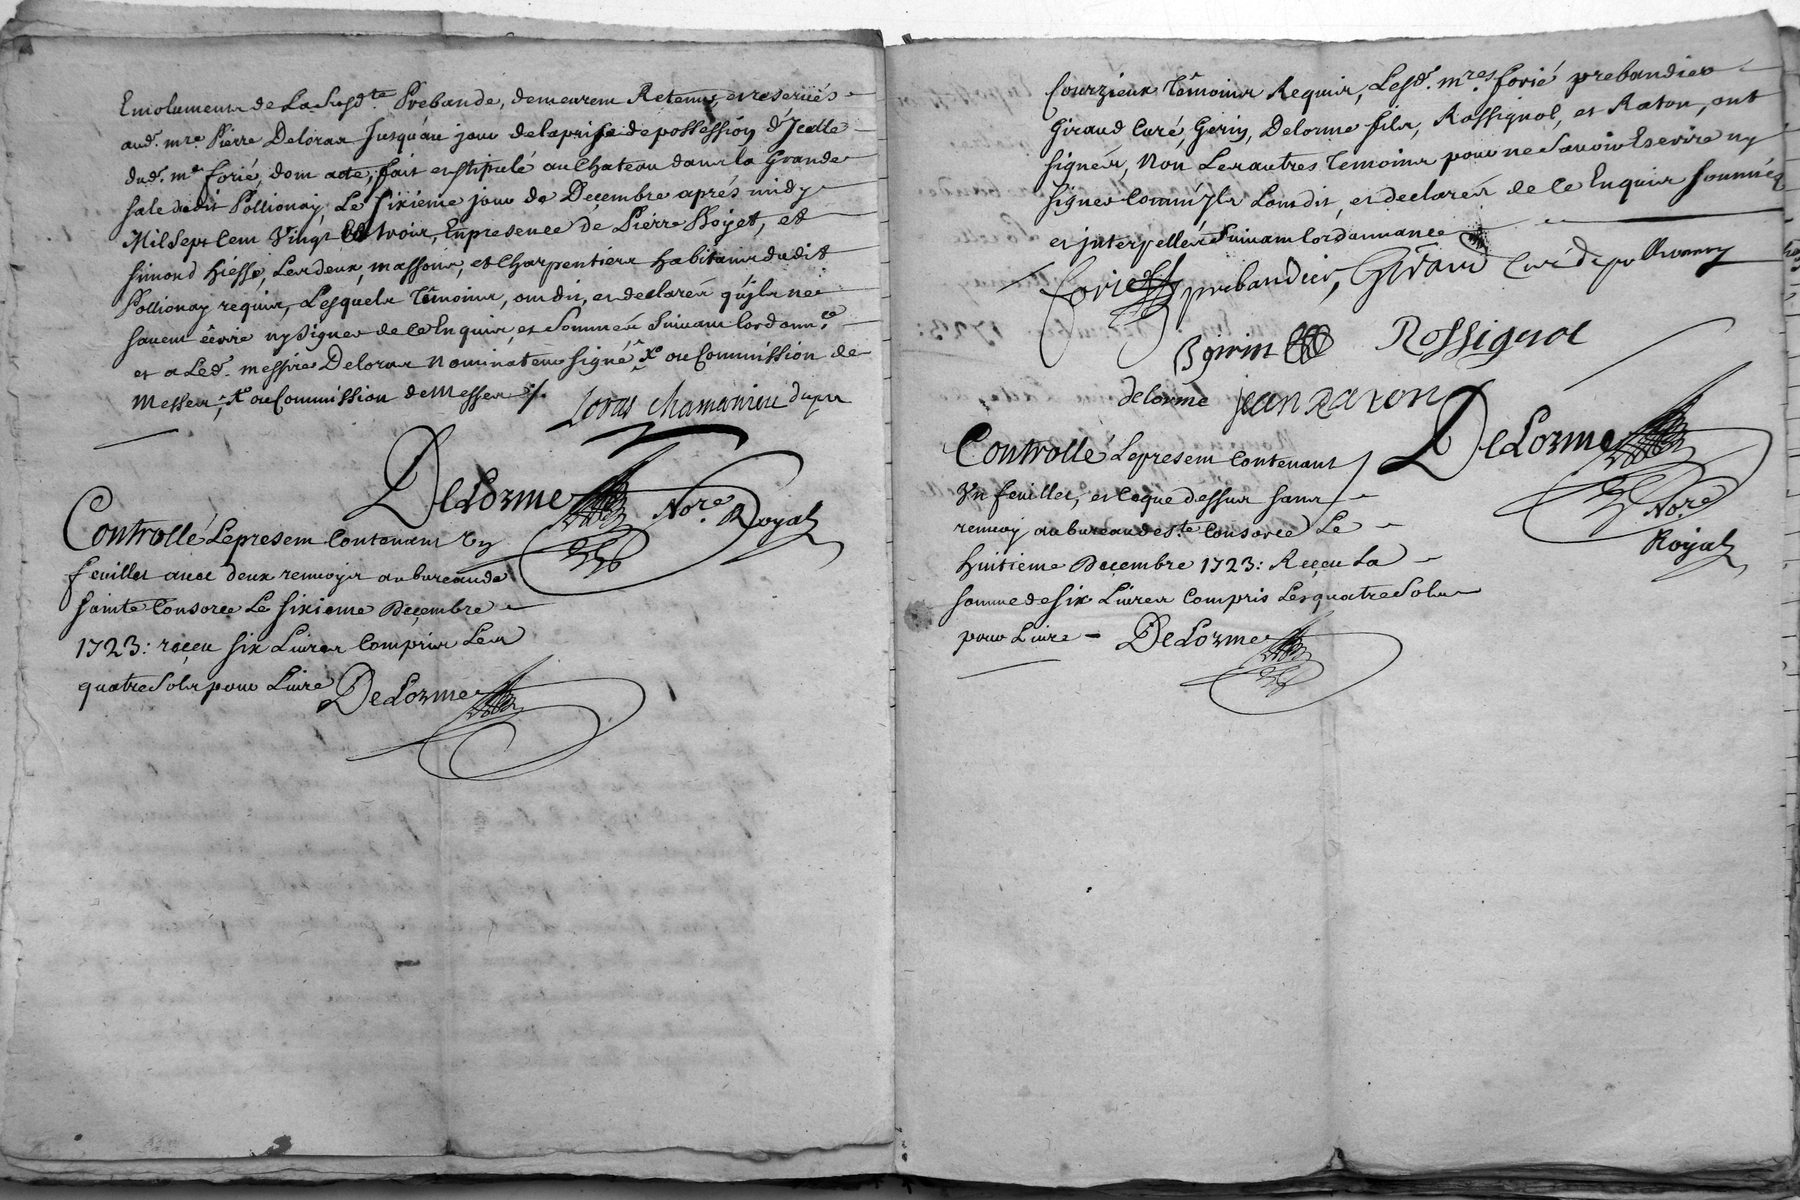 Emolumens de La Susd.te Prebande, demeurent Retenus, et reservés
aud. mre Pierre Deloras Jusqu'au jour de la prise de possession d'Jcelle
dud. mre forié, dont acte, fait et stipulé au Chateau dans la Grande
sale dudit Pollionay, Le sixiéme jour de Deçembre aprés midy
Mil Sept Cent Vingt trois, En presence de Pierre et
Simond Les deux massons, et Charpentiers habitans dudit
Pollionay requis, Lesquels Témoins, ont dit, et declarés qu'jls ne
savent écrire ny signer de ce Enquis, et Sommés Suivant lordonn.ce
et a Led. messire Deloras Nominateur signé, X ou Commission de
Messes, X ou Commission de Messes
Loras Chamanieu
DeLorme No.re Royal
Controllé Le present Contenant Vn
feuillet avec deux renvoyis au bureau de
Sainte Consorce Le Sixieme Deçembre
1723: reçeu six Livres Compris Les
quatre Sols pour Livre DeLorme
Courzieux Témoins Requis, Lesd. mres forié prebandier
Giraud Curé, Gerin, Delorme fils, Rossignol, et Raton, ont
signés, Non Les autres Temoins pour ne Savoir Escrire ny
signer Comm'jls L'ont dit, et declarés de ce Enquis sommés
et jnterpellés Suivant lordonnance
forié prebandier, Giraud Curé de
gerin Rossignol
delorme jean Raton
DeLorme No.re Royal
Controllé Le present Contenant
Vn feuillet, et Ce que dessus sans
renvoy au bureau de S.te Consorce Le
Huitieme Deçembre 1723: Reçeu La
somme de six Livres Compris Les quatre Sols
pour Livre - DeLorme